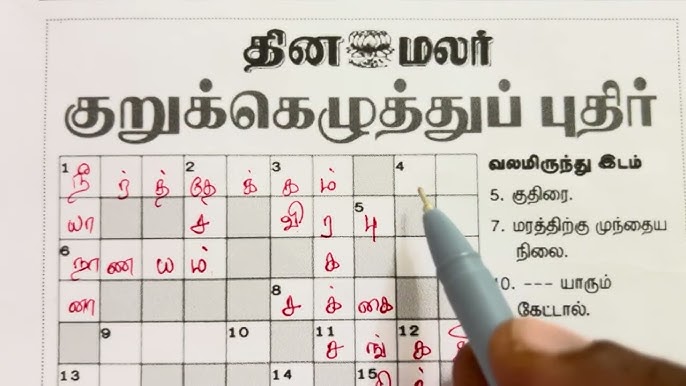 தின மலர்
குறுக்கெழுத்துப் புதிர்
1 நீ ர் த் தே 2 க் 3 க ம் 4
யா ச வி ர 5 பு
6 நா ண ய ம் க
ணா 8 ச க் கை
9 10 11 ச ங் 12 க
13 14 15
வலமிருந்து இடம்
5. குதிரை.
7. மரத்திற்கு முந்தைய
நிலை.
10. --- யாரும்
கேட்டால்.